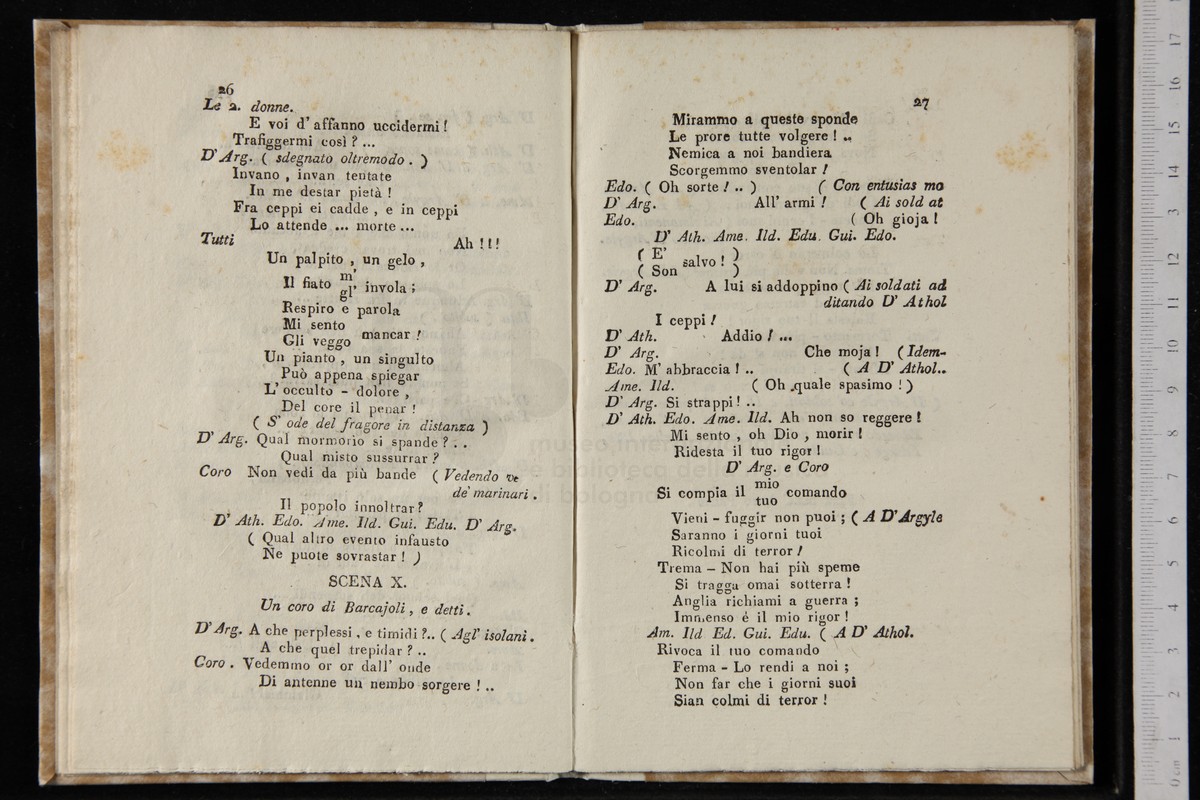 26
Le 2. donne.
E voi d' affanno uccidermi!
Trafiggermi così ? ...
D' Arg. ( sdegnato oltremodo . )
Invano , invan tentate
In me destar pietà !
Fra ceppi ei cadde , e in ceppi
Lo attende ... morte ...
Tutti Ah !!!
Un palpito , un gelo ,
Il fiato m' invola ;
gl'
Respiro e parola
Mi sento
Gli veggo mancar !
Un pianto , un singulto
Può appena spiegar
L' occulto - dolore ,
Del core il penar !
( S' ode del fragore in distanza )
D' Arg. Qual mormorio si spande ? . .
Qual misto sussurrar ?
Coro Non vedi da più bande ( Vedendo ve
de' marinari .
Il popolo innoltrar?
D' Ath. Edo. Ame. Ild. Gui. Edu. D' Arg.
( Qual altro evento infausto
Ne puote sovrastar ! )
SCENA X.
Un coro di Barcajoli , e detti .
D' Arg. A che perplessi , e timidi ?.. ( Agl' isolani .
A che quel trepidar ? ..
Coro . Vedemmo or or dall' onde
Di antenne un nembo sorgere ! ..
27
Mirammo a queste sponde
Le prore tutte volgere ! ..
Nemica a noi bandiera
Scorgemmo sventolar !
Edo. ( Oh sorte ! .. ) ( Con entusias mo
D' Arg. All' armi ! ( Ai sold at
Edo. ( Oh gioja !
D' Ath. Ame. Ild. Edu. Gui. Edo.
( E' salvo ! )
( Son )
D' Arg. A lui si addoppino ( Ai soldati ad
ditando D' Athol
I ceppi !
D' Ath. Addio ! ...
D' Arg. Che moja ! ( Idem-
Edo. M' abbraccia ! .. ( A D' Athol..
Ame. Ild. ( Oh quale spasimo ! )
D' Arg. Si strappi ! ..
D' Ath. Edo. Ame. Ild. Ah non so reggere !
Mi sento , oh Dio , morir !
Ridesta il tuo rigor !
D' Arg. e Coro
Si compia il mio comando
tuo
Vieni - fuggir non puoi ; ( A D' Argyle
Saranno i giorni tuoi
Ricolmi di terror !
Trema - Non hai più speme
Si tragga omai sotterra !
Anglia richiami a guerra ;
Immenso é il mio rigor !
Am. Ild Ed. Gui. Edu. ( A D' Athol.
Rivoca il tuo comando
Ferma - Lo rendi a noi ;
Non far che i giorni suoi
Sian colmi di terror !